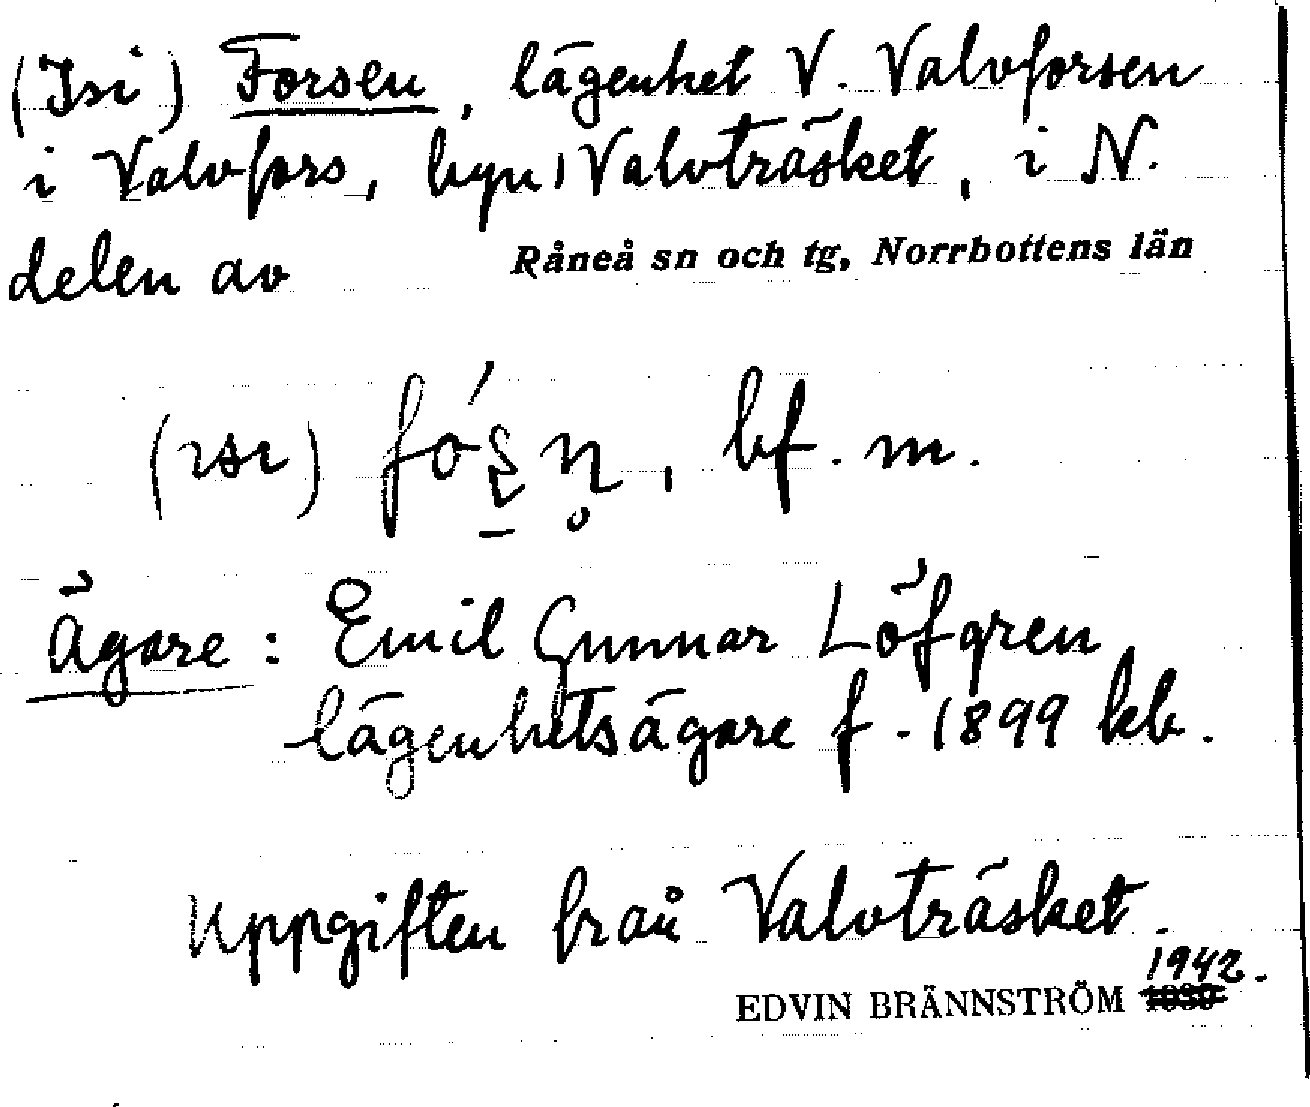 (Isi) Forsen, lägenhet V. Valvforsen
i Valvfors, byn Valvträsket, i N.
delen av Råneå sn och tg, Norrbottens län
(ısı) fo´s̱n̥, bf. m.
Ägare: Emil Gunnar Löfgren
lägenhetsägare f. 1899 kb.
Uppgiften från Valvträsket.
1942.
EDVIN BRÄNNSTRÖM